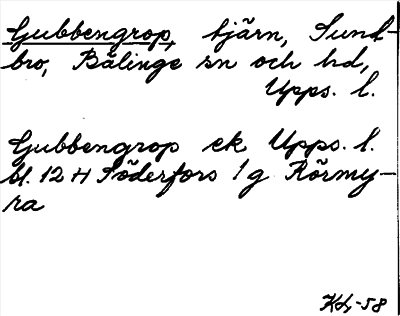 Gubbengrop, tjärn, Sund-
bro, Bälinge sn och hd,
Upps. l.
Gubbengrop ek Upps. l.
bl. 12 H Söderfors 1 g Rörmy-
ra
KL-58